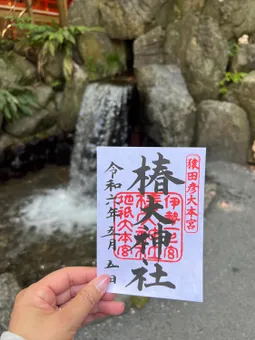 猿田彦大本宮
椿大神社
伊勢一之宮
地祇大本宮
令和六年五月五日